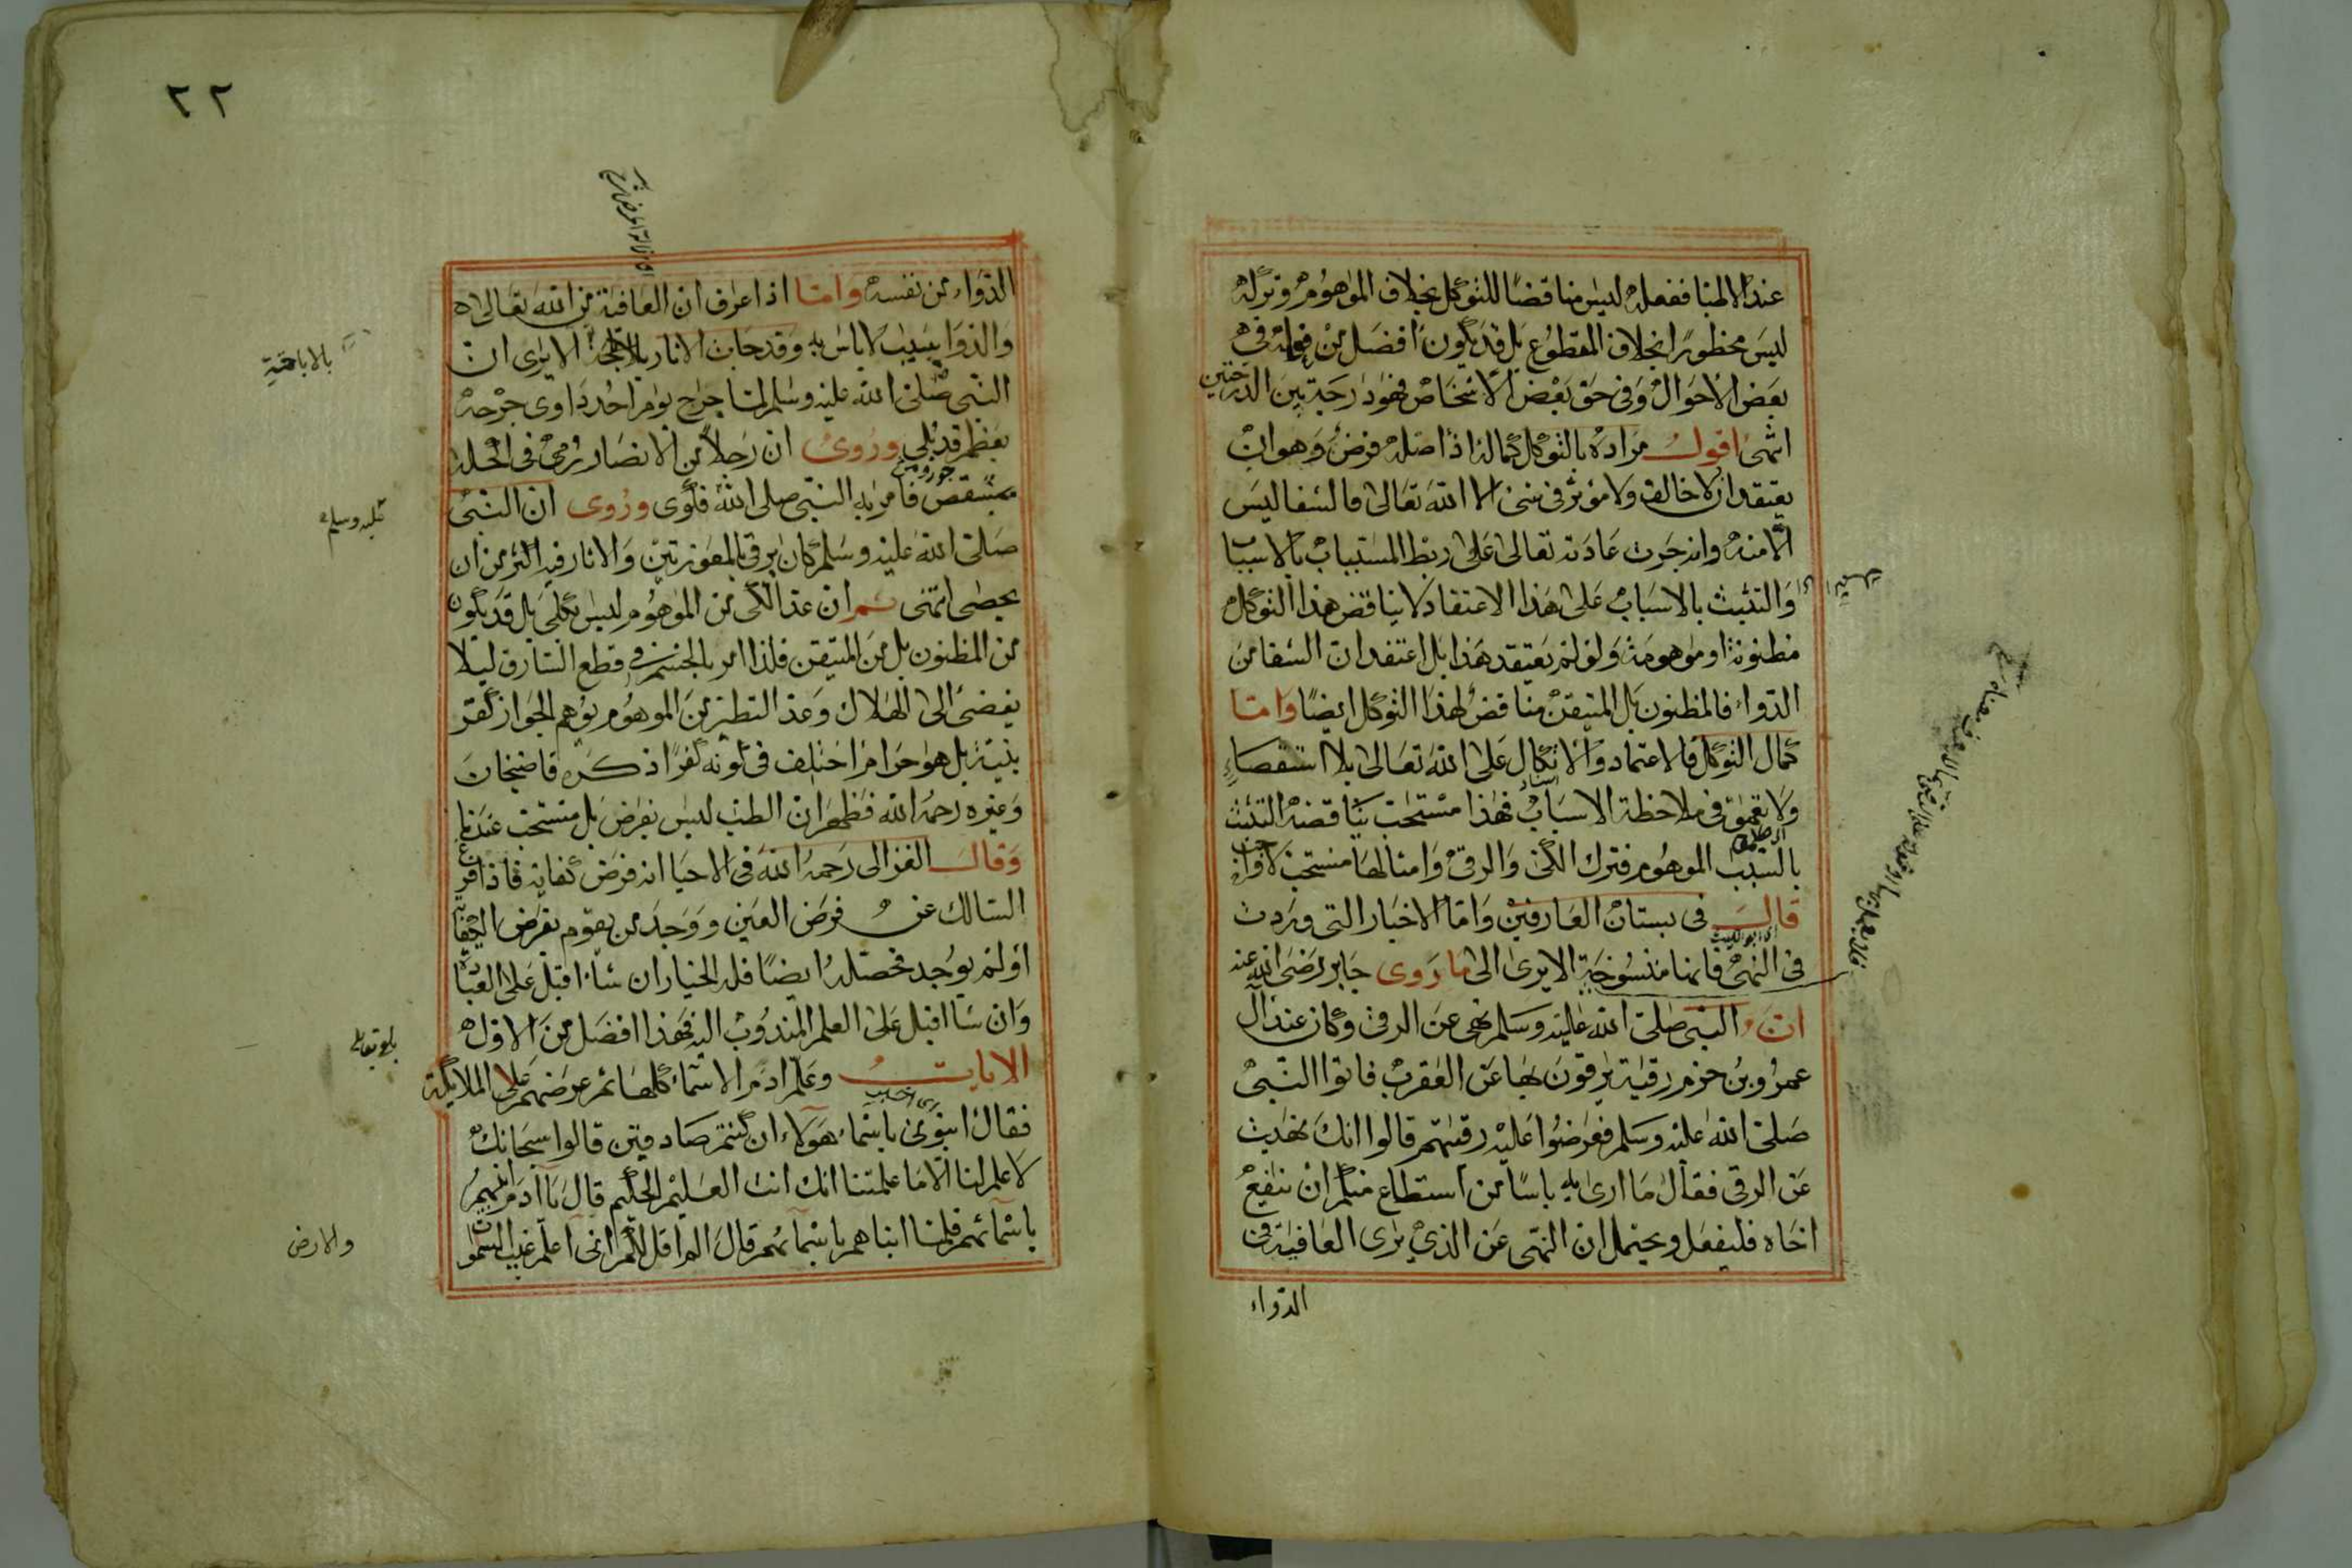 عند الاطبا ففعله ليس مناقضا للتوكل بخلاف الموهوم وتركه
ليس محظورا بخلاف المقطوع بل قد يكون افضل من فعله في
بعض الاحوال وفي حق بعض الاشخاص فهو درجة بين الدرجتين
انتهى اقول مراده بالتوكل كماله اذ اصله فرض وهو ان
يعتقد ان لا خالق ولا مؤثر في شئ الا الله تعالى فالشفا ليس
الا منه وانه جرت عادته تعالى على ربط المسببات بالاسباب
والتشبث بالاسباب على هذا الاعتقاد لا يناقض هذا التوكل
مظنونة او موهومة ولو لم يعتقد هذا بل اعتقد ان الشفا من
الدواء فالمظنون بل المتيقن مناقض لهذا التوكل ايضا واما
كمال التوكل فالاعتماد والاتكال على الله تعالى بلا استقصاء
ولا تعمق في ملاحظة الاسباب فهذا مستحب يناقضه التشبث
بالسبب الموهوم فترك الكي والرقي وامثالها مستحب لا واجب
قال في بستان العارفين واما الاخبار التي وردت
اى ابو الليث
في النهي فانها منسوخة الا يرى الى ما روى جابر رضى الله عنه
ان النبي صلى الله عليه وسلم نهى عن الرقى وكان عند آل
عمرو بن حزم رقية يرقون بها عن العقرب فاتوا النبي
صلى الله عليه وسلم فعرضوا عليه رقيتهم قالوا انك نهيت
عن الرقى فقال ما ارى به باسا من استطاع منكم ان ينفع
اخاه فليفعل ويحتمل ان النهى عن الذي يرى العافية في
الدواء
٢٢
الدواء من نفسه واما اذا عرف ان العافية من الله تعالى
والدوا بسبب لا باس به وقد جات الاثار الا يرى ان
بالاباحة
النبي صلى الله عليه وسلم لما جرح يوم احد داوى جرحه
بعظم قد بلي وروى ان رجلا من الانصار رمي في اكحله
بمشقص فامر به النبي صلى الله فكوى وروى ان النبي
عليه وسلم
صلى الله عليه وسلم كان يرقى بالمعوذتين والاثار فيه اكثر من ان
يحصى انتهى ثم ان عد الكي من الموهوم ليس بكلي بل قد يكون
من المظنون بل من المتيقن فلذا امر بالحسم في قطع السارق ليلا
يفضى الى الهلاك وعد التطير من الموهوم يوهم الجواز كقر
بنيته بل هو حرام اختلف في كونه كفرا ذكره قاضيخان
وغيره رحمه الله فظهر ان الطب ليس بفرض بل مستحب عندنا
وقال الغزالى رحمه الله في الاحيا انه فرض كفاية فاذا فرغ
السالك عن فرض العين ووجد من يقوم بفرض الكفاية
او لم يوجد فحصله ايضا فله الخيار ان شاء اقبل على العبادة
وان شا اقبل على العلم المندوب اليه فهذا افضل من الاول
الايات وعلم ادم الاسماء كلها ثم عرضهم على الملائكة
فقال انبؤنى باسماء هؤلاء ان كنتم صادقين قالوا سبحانك
لا علم لنا الا ما علمتنا انك انت العليم الحكيم قال يا آدم انبئهم
باسمائهم فلما انباهم باسمائهم قال الم اقل لكم انى اعلم غيب السموات
والارض